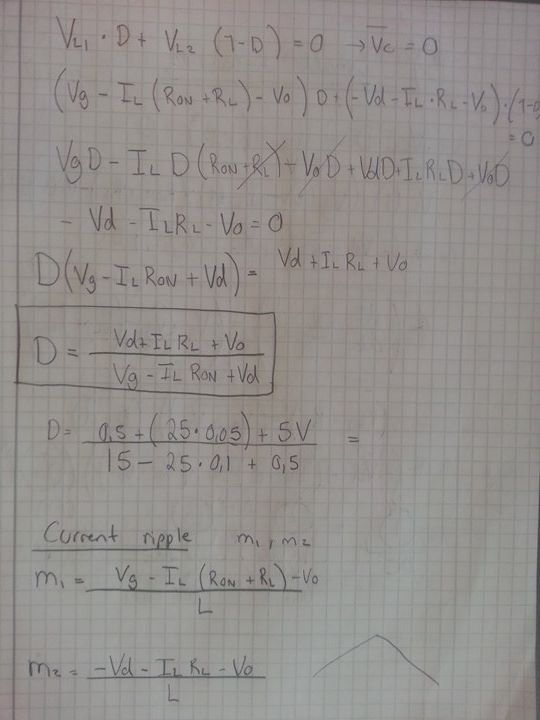 V_L1 · D + V_L2 (1-D) = 0 → V̅c = 0
(Vg - I_L (R_ON + R_L) - Vo) D + (-Vd - I_L · R_L - Vo) · (1-D)
= 0
VgD - I_L D (R_ON + R_L) - VoD + VdD + I_L R_L D + VoD
- Vd - I_L R_L - Vo = 0
D(Vg - I_L R_ON + Vd) = Vd + I_L R_L + Vo
D = (Vd + I_L R_L + Vo) / (Vg - I_L R_ON + Vd)
D = (0,5 + (25·0,05) + 5V) / (15 - 25·0,1 + 0,5) =
Current ripple m1, m2
m1 = (Vg - I_L (R_ON + R_L) - Vo) / L
m2 = (-Vd - I_L R_L - Vo) / L